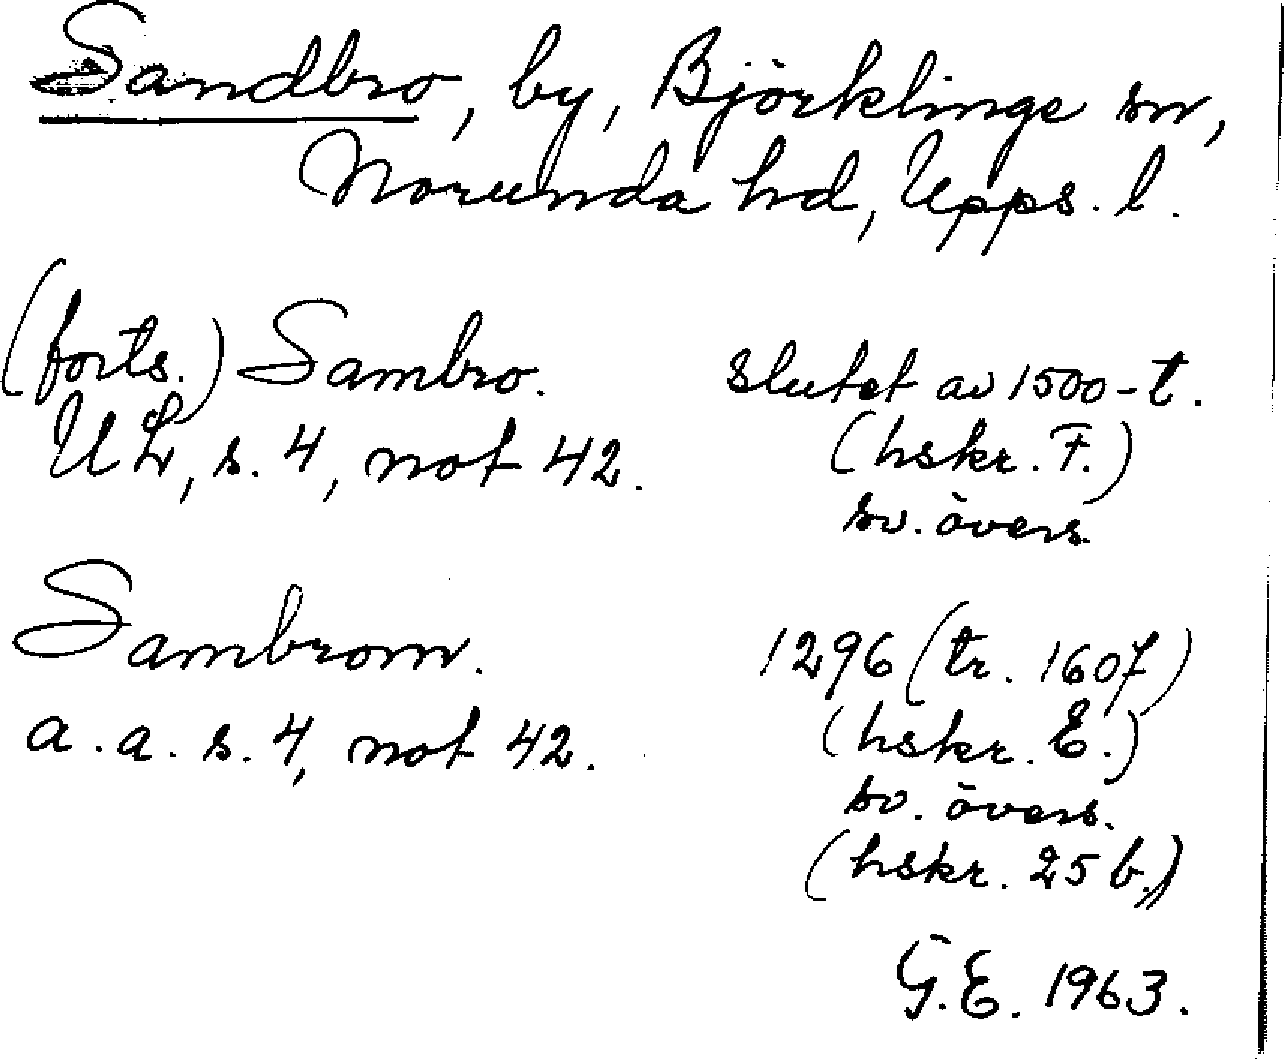 Sandbro, by, Björklinge sn,
Norunda hd, Upps. l.
(forts.) Sambro. slutet av 1500-t.
UL, s. 4, not 42. (hskr. F.)
sv. övers.
Sambrom. 1296 (tr. 1607)
a. a. s. 4, not 42. (hskr. E.)
sv. övers.
(hskr. 25 b.)
G.E. 1963.